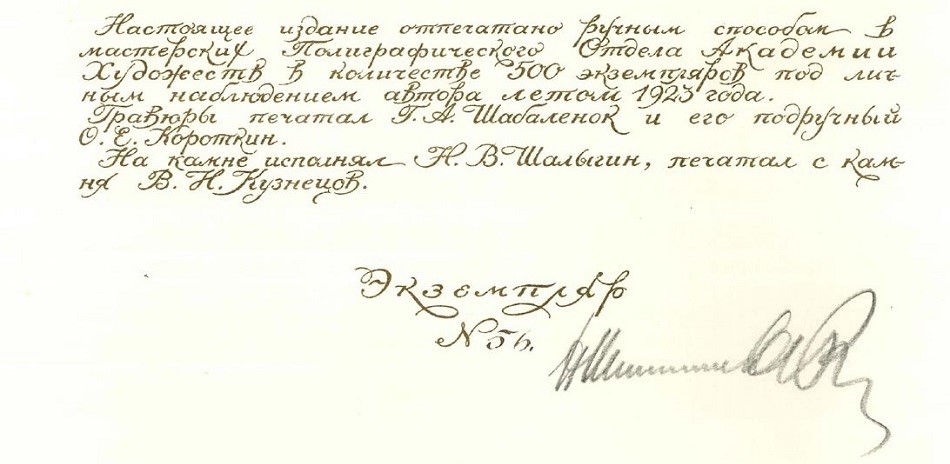 Настоящее издание отпечатано ручным способом в
мастерских Полиграфического Отдела Академии
Художеств в количестве 500 экземпляров под лич-
ным наблюдением автора летом 1923 года.
Гравюры печатал Г. А. Шабаленок и его подручный
О. Е. Короткин.
На камне исполнял Н. В. Шалыгин, печатал с кам-
ня В. Н. Кузнецов.
Экземпляр
N 56.